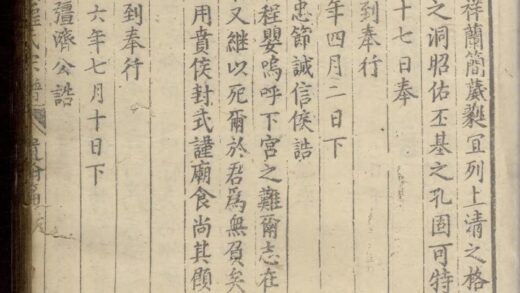 祥蘭簡葳蕤宜列上清之格
之洞昭佑丕基之孔固可特
十七日奉
到奉行
年四月二日下
忠節誠信侯誥
程嬰嗚呼下宮之難爾志在
又継以死爾於君為無負矣
用賁侯封式謹廟食尚其顧
到奉行
六年七月十日下
疆濟公誥
程氏宗譜